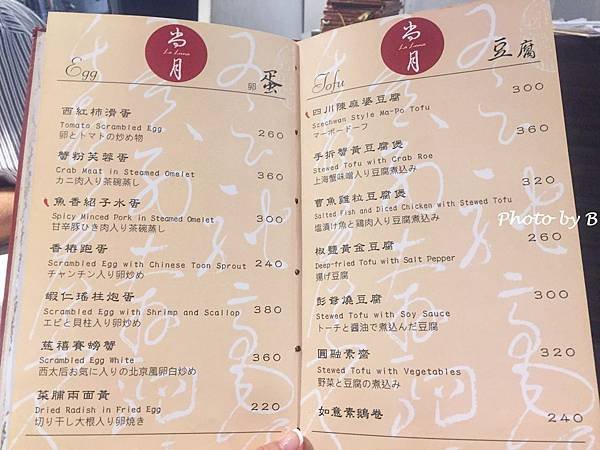 尚月
La Luna
Egg
卵 蛋
西紅柿滑蛋
Tomato Scrambled Egg
卵とトマトの炒め物
260
蟹粉芙蓉蛋
Crab Meat in Steamed Omelet
カニ肉入り茶碗蒸し
360
魚香紹子水蛋
Spicy Minced Pork in Steamed Omelet
甘辛豚ひき肉入り茶碗蒸し
300
香椿跑蛋
Scrambled Egg with Chinese Toon Sprout
チャンチン入り卵炒め
240
蝦仁瑤柱炮蛋
Scrambled Egg with Shrimp and Scallop
エビと貝柱入り卵炒め
380
慈禧賽螃蟹
Scrambled Egg White
西太后お気に入りの北京風卵白炒め
360
菜脯兩面黃
Dried Radish in Fried Egg
切り干し大根入り卵焼き
220
尚月
La Luna
Tofu
豆腐
四川陳麻婆豆腐
Szechwan Style Ma-Po Tofu
マーボードーフ
300
手拆蟹黃豆腐煲
Stewed Tofu with Crab Roe
上海蟹味噌入り豆腐煮込み
360
曹魚雞粒豆腐煲
Salted Fish and Diced Chicken with Stewed Tofu
塩漬け魚と鶏肉入り豆腐煮込み
320
椒鹽黃金豆腐
Deep-fried Tofu with Salt Pepper
揚げ豆腐
260
彭爺燒豆腐
Stewed Tofu with Soy Sauce
トーチと醬油で煮込んだ豆腐
300
圓融素齋
Stewed Tofu with Vegetables
野菜と豆腐の煮込み
320
如意素鵝卷
240
Photo by B